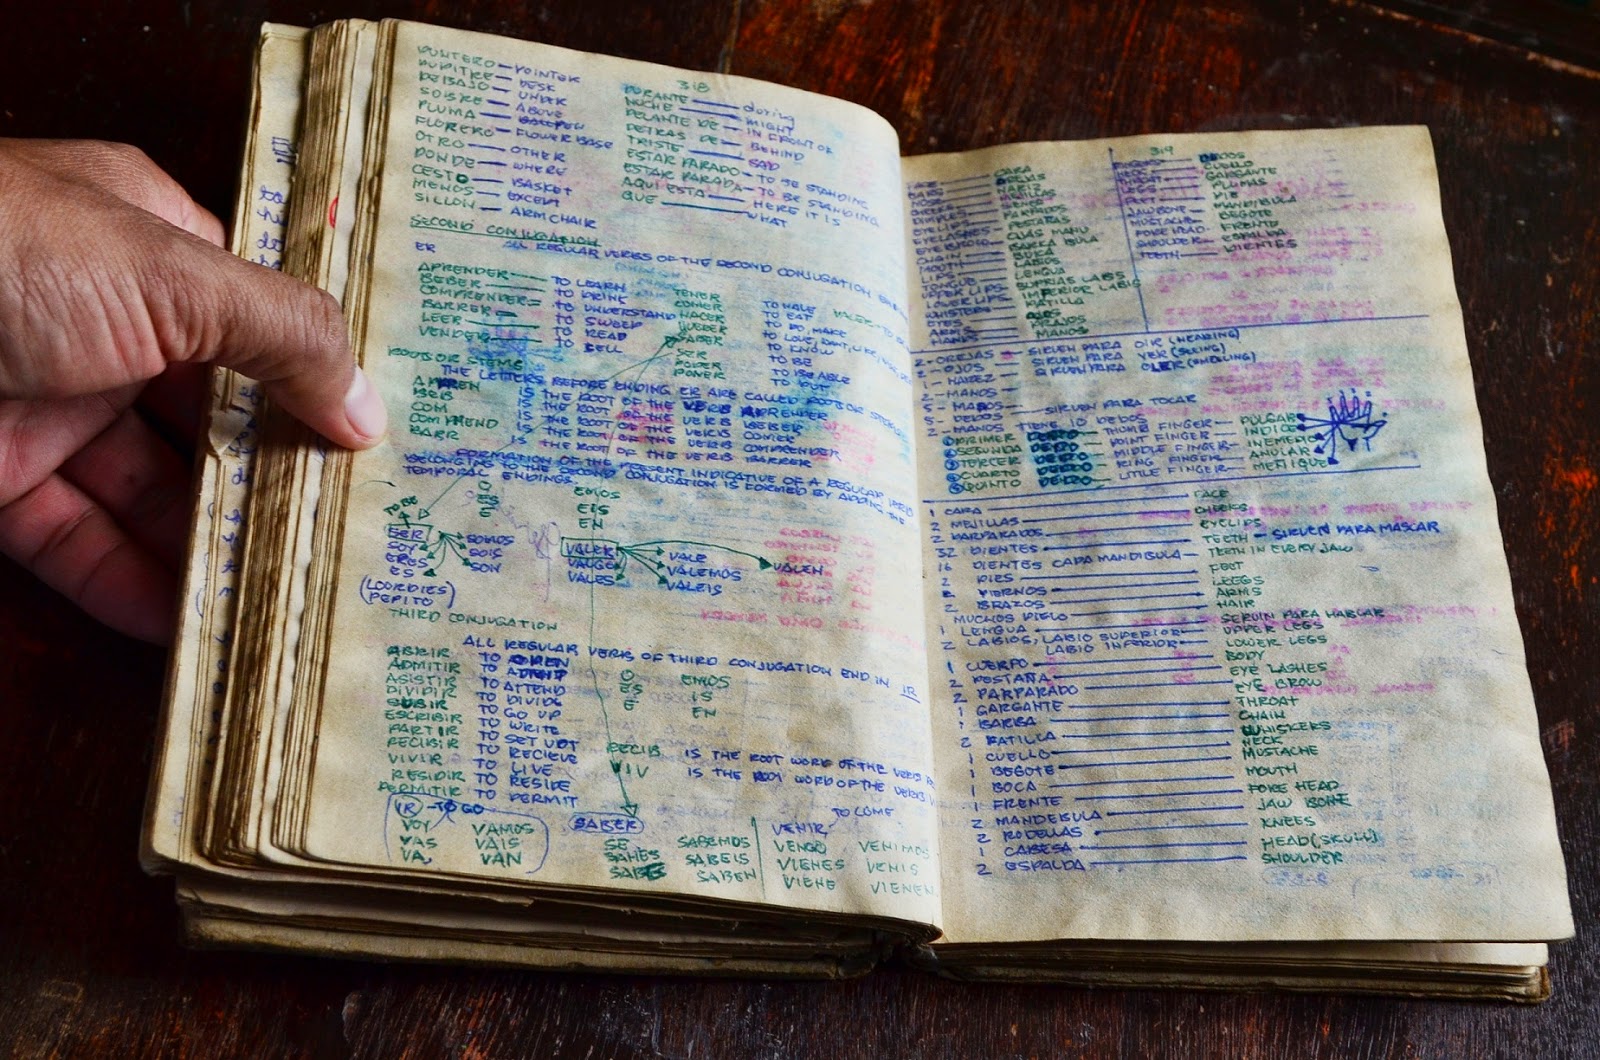 318
PUNTERO — POINTER
PUPITRE — DESK
DEBAJO — UNDER
SOBRE — ABOVE
PLUMA — BALLPEN
FLORERO — FLOWER BASE
OTRO — OTHER
DONDE — WHERE
CESTO — BASKET
MENOS — EXCEPT
SILLON — ARMCHAIR
DURANTE — during
NOCHE — NIGHT
DELANTE DE — IN FRONT OF
DETRAS DE — BEHIND
TRISTE — SAD
ESTAR PARADO — TO BE STANDING
ESTAR PARADA — TO BE STANDING
AQUI ESTA — HERE IT IS
QUE — WHAT
SECOND CONJUGATION
ER ALL REGULAR VERBS OF THE SECOND CONJUGATION END
APRENDER — TO LEARN
BEBER — TO DRINK
COMPRENDER — TO UNDERSTAND
BARRER — TO SWEEP
LEER — TO READ
VENDER — TO SELL
TENER TO HAVE
COMER TO EAT
HACER TO DO, MAKE
QUERER TO LOVE, WANT, LIKE
SABER TO KNOW
SER TO BE
PODER TO BE ABLE
PONER TO PUT
VALER
ROOTS OR STEMS
THE LETTERS BEFORE ENDING ER ARE CALLED ROOTS OR STEMS
APREN IS THE ROOT OF THE VERB APRENDER
BEB IS THE ROOT OF THE VERB BEBER
COM IS THE ROOT OF THE VERB COMER
COMPREND IS THE ROOT OF THE VERB COMPRENDER
BARR IS THE ROOT OF THE VERB BARRER
FORMATION OF THE PRESENT INDICATIVE OF A REGULAR VERB
BELONGING TO THE SECOND CONJUGATION IS FORMED BY ADDING THE
TEMPORAL ENDINGS.
O EMOS
ES EIS
E EN
TO BE
SER SOMOS
SOY SOIS
ERES SON
ES
(LOORDIES)
(PEPITO)
VALER VALE VALEN
VALGO VALEMOS
VALES VALEIS
THIRD CONJUGATION
ALL REGULAR VERBS OF THIRD CONJUGATION END IN IR
ABRIR TO OPEN
ADMITIR TO ADMIT
ASISTIR TO ATTEND
DIVIDIR TO DIVIDE
SUBIR TO GO UP
ESCRIBIR TO WRITE
PARTIR TO SET OUT
RECIBIR TO RECIEVE
VIVIR TO LIVE
RESIDIR TO RESIDE
PERMITIR TO PERMIT
O EMOS
ES IS
E EN
RECIB IS THE ROOT WORK OF THE VERB
VIV IS THE ROOT WORD OF THE VERB
IR — TO GO
VOY VAMOS
VAS VAIS
VA, VAN
SABER
SE SABEMOS
SABES SABEIS
SABE SABEN
TO COME
VENIR
VENGO VENIMOS
VIENES VENIS
VIENE VIENEN
319
FACE — CARA
NOSE — NARIZ
CHEEKS — MEJILLAS
DIMPLES
EYELIPS — PARPADOS
EYELASHES — PESTAÑAS
EYE BROW
CHAIN — BARBA
MOUTH — BOKA
LIPS — LABIOS
TONGUE — LENGUA
UPPER LIPS
LOWER LIPS — INFERIOR LABIS
WHISKERS — PATILLA
EYES — OJOS
ARMS — BRAZOS
HANDS — MANOS
DEDOS
NECK — CUELLO
THROAT — GARGANTE
LEGS
FEET — PIE
JAW BONE — MANDIBULA
MUSTACHE — BIGOTE
FORE HEAD — FRENTE
SHOULDER — ESPALDA
TEETH — DIENTES
2 - OREJAS — SIRVEN PARA OIR (HEARING)
2 - OJOS — SIRVEN PARA VER (SEEING)
1 - NAREZ — SIRVEN PARA OLER (SMELLING)
2 - MANOS
5 - MANOS — SIRVEN PARA TOCAR
5 - DEDOS
2 - MANOS TIENE 10 DEDOS
① PRIMER DEDO — THUMB FINGER — PULGAR
② SEGUNDA DEDO — POINT FINGER — INDICE
③ TERCER DEDO — MIDDLE FINGER — INEMEDIO
④ CUARTO DEDO — RING FINGER — ANULAR
⑤ QUINTO DEDO — LITTLE FINGER — MEÑIQUE
1 CARA — FACE
2 MEJILLAS — CHEEKS
2 PARPARADOS — EYELIPS
32 DIENTES — TEETH — SIRVEN PARA MASCAR
16 DIENTES CAPA MANDIBULA — TEETH IN EVERY JAW
2 PIES — FEET
2 PIERNOS — LEGGS
2 BRAZOS — ARMS
MUCHOS PIELO — HAIR
1 LENGUA — SERVIN PARA HABLAR
2 LABIOS, LABIO SUPERIOR — UPPER LEGS
LABIO INFERIOR — LOWER LEGS
1 CUERPO — BODY
2 PESTAÑA — EYE LASHES
2 PARPARADO — EYE BROW
1 GARGANTE — THROAT
1 BARBA — CHAIN
2 PATILLA — WHISKERS
1 CUELLO — NECK
1 BEGOTE — MUSTACHE
1 BOCA — MOUTH
1 FRENTE — FORE HEAD
2 MANDEIBULA — JAW BONE
2 RODELLAS — KNEES
1 CABESA — HEAD (SKULL)
2 ESPALDA — SHOULDER